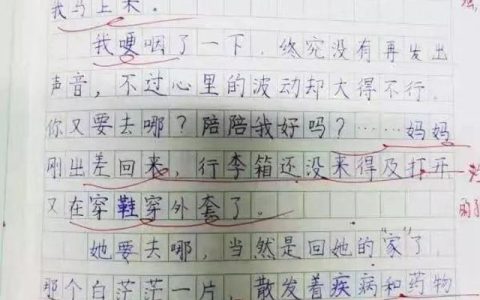 我马上来。
我哽咽了一下，终究没有再发出
声音，不过心里的波动却大得不行。
你又要去哪？陪陪我好吗？……妈妈
刚出差回来，行李箱还没来得及打开
又在穿鞋穿外套了。
她要去哪，当然是回她的“家”了，
那个白茫茫一片，散发着疾病和药物